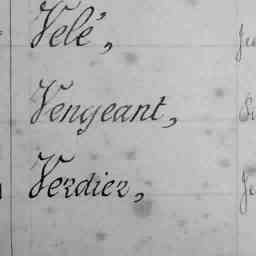 Velé,
Vengeant,
Verdier,